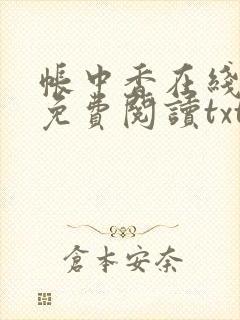 帳中香在綫
免費閱讀txt
倉本安奈